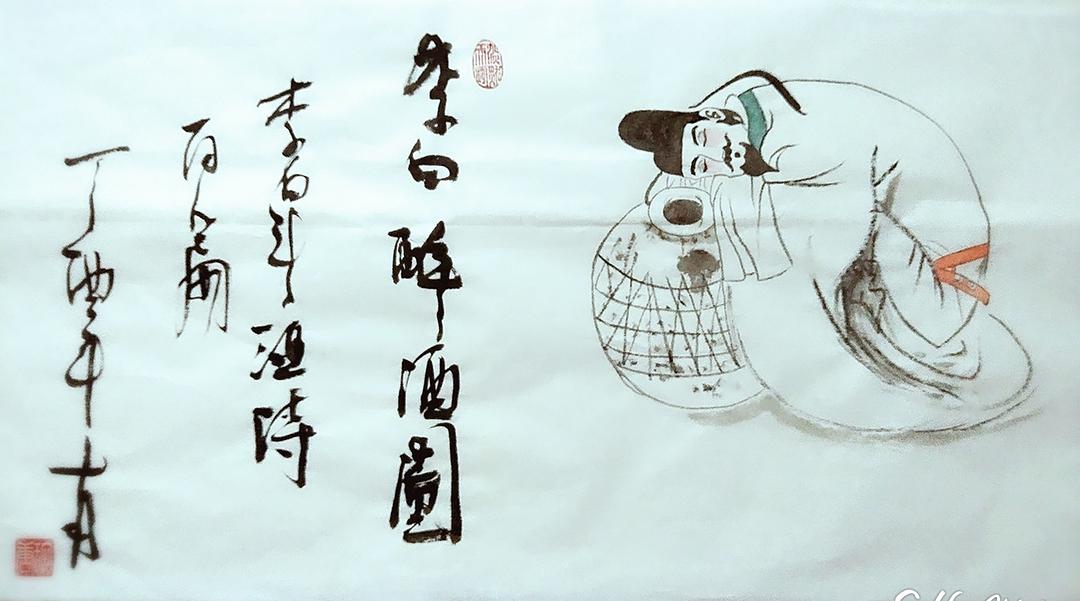 李白醉酒圖
李白斗酒詩
百篇
丁酉年十月